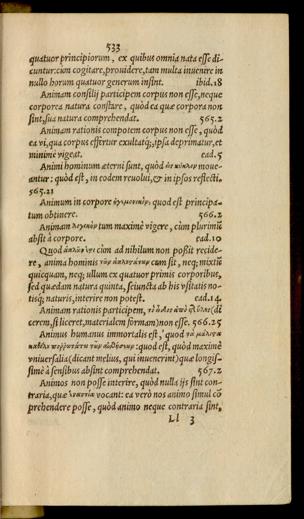 533
quatuor principiorum, ex quibus omnia nata esse di-
cuntur: cum cogitare, prouidere, tam multa inuenire in
nullo horum quatuor generum insint. ibid. 18
Animam consilij participem corpus non esse, neque
corporea natura constare, quòd ea quæ corpora non
sint, sua natura comprehendat. 565.2
Animam rationis compotem corpus non esse, quòd
ea vi, qua corpus effertur exultátq;, ipsa deprimatur, et
minimè vigeat. ead. 5
Animi hominum æterni sunt, quòd ἐν κύκλῳ moue-
antur: quòd est, in eodem reuolui, & in ipsos reflecti.
565.21
Animum in corpore ἡγεμονικὸν, quod est principa-
tum obtinere. 566.2
Animam λογικὴν tum maximè vigere, cùm plurimū
absit à corpore. ead. 10
Quod cùm ad nihilum non poßit recide-
re, anima hominis cum sit, neq; mixtū
quicquam, neq; ullum ex quatuor primis corporibus,
sed quædam natura quinta, seiuncta ab his vsitatis no-
tisq; naturis, interire non potest. ead. 14.
Animam rationis participem, (di
cerem, si liceret, materialem formam) non esse. 566.25
Animus humanus immortalis est, quod τὰ μάλιστα
:quod est, quòd maximè
vniuersalia (dicant melius, qui inuenerint) quæ longis-
simè à sensibus absint comprehendat. 567.2
Animos non posse interire, quòd nulla ijs sint con-
traria, quæ ἐναντία vocant: ea verò nos animo simul cō
prehendere posse, quòd animo neque contraria sint,
Ll 3